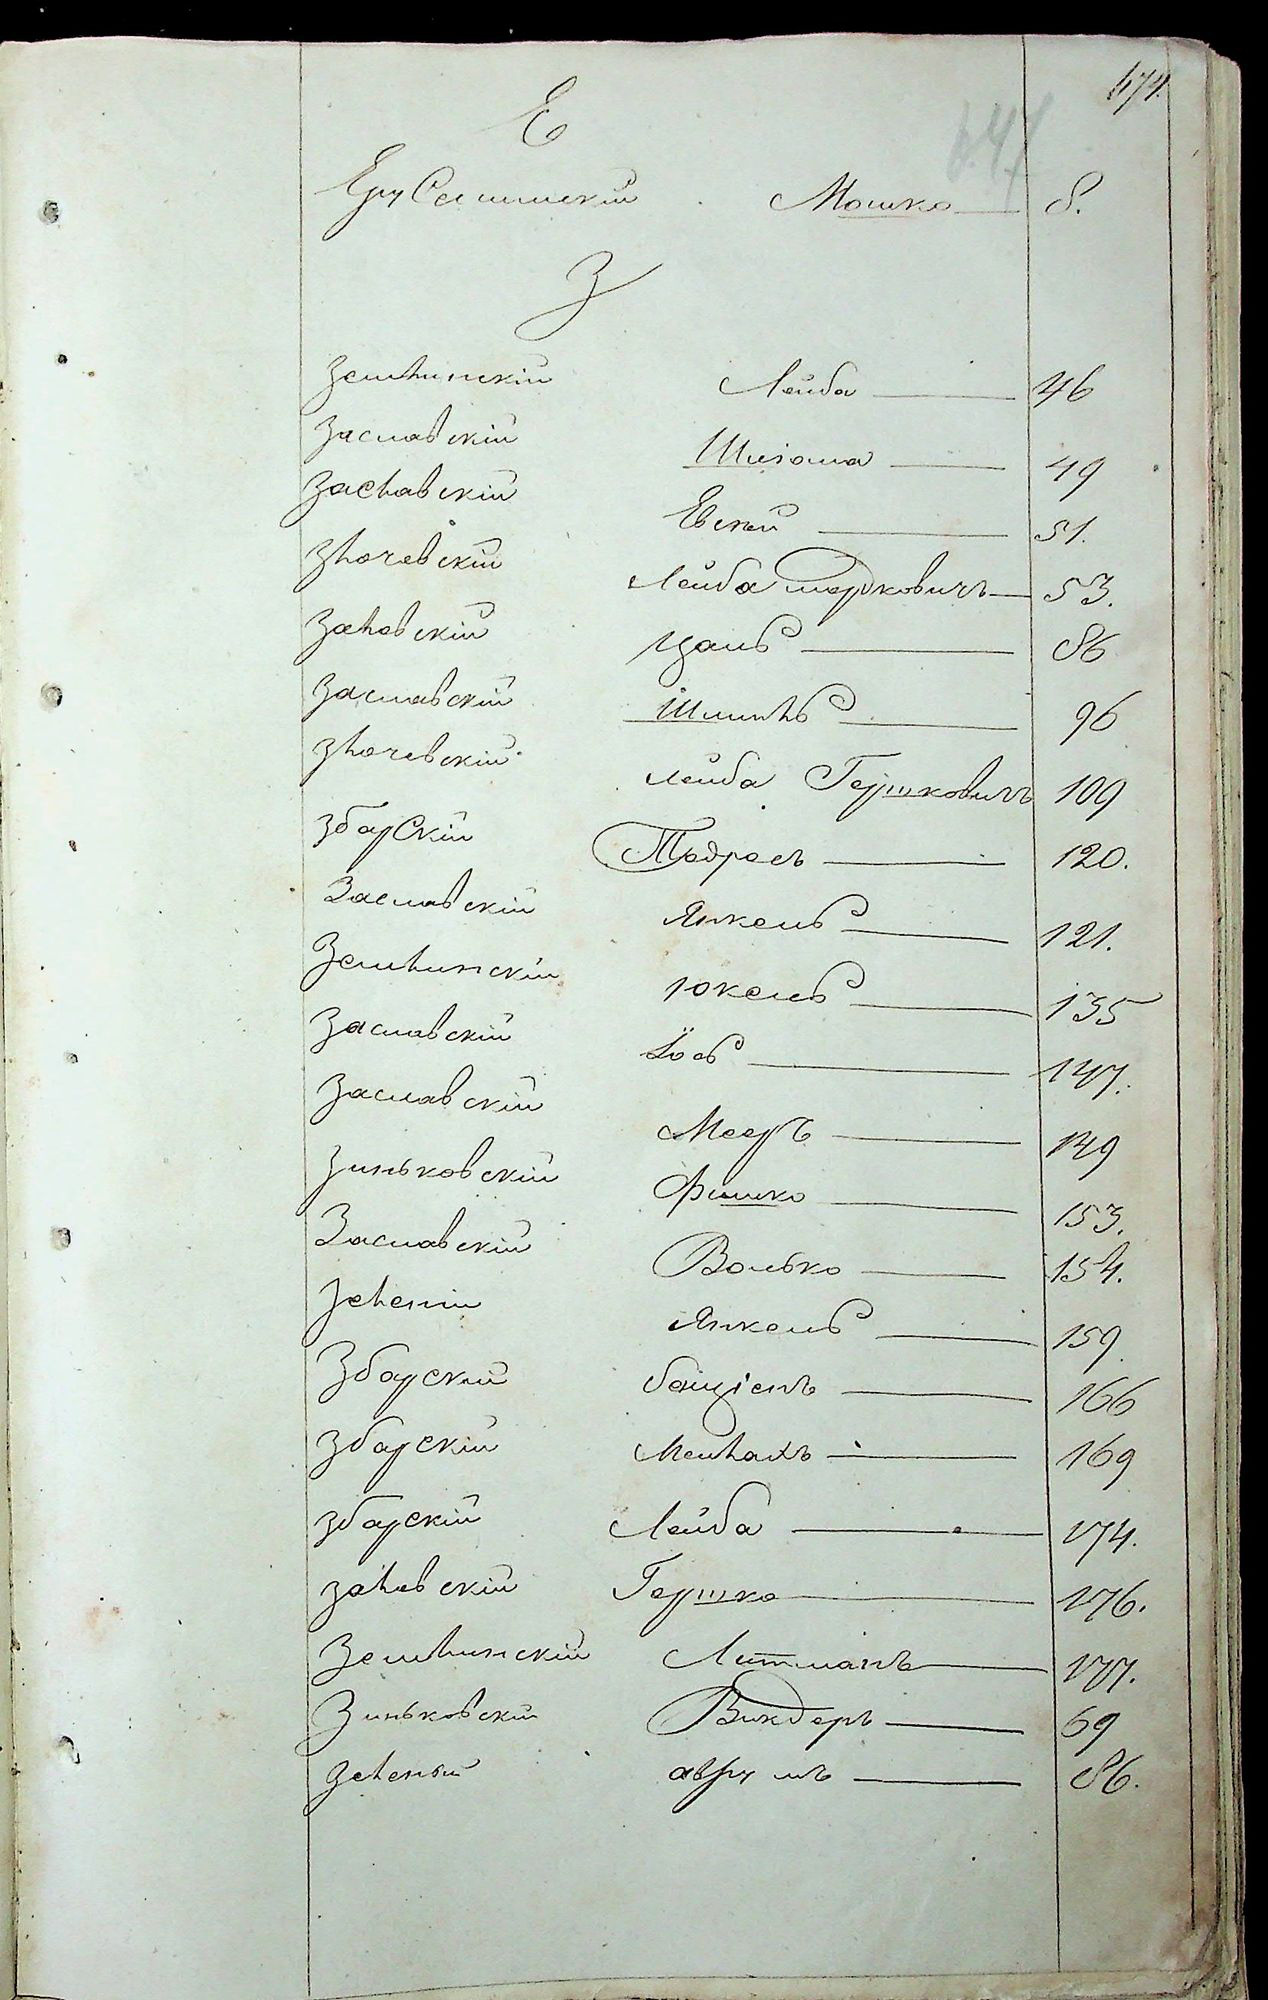 674.
Е
Ерусалимскій Мошко 8.
З
Землинскій Лейба 46
Заславскій Шліома 49
Заславскій Евсей 51.
Злочевскій Лейба Шерковичъ 53.
Залевскій Цаль 86
Заславскій Шмиль 96
Злочевскій Лейба Гершковичъ 109
Збарскій Тодросъ 120.
Заславскій Янкель 121.
Землинскій Юкель 135
Заславскій Іось 147.
Заславскій Мееръ 149
Зиньковскій Фишко 153.
Заславскій Волько 154.
Зеленій Янкель 159
Збарскій Бенціенъ 166
Збарскій Мейлахъ 169
Збарскій Лейба 174.
Залевскій Гершко 176.
Землинскій Литманъ 177.
Зиньковскій Викдеръ 69
Зеленый Аврумъ 86.